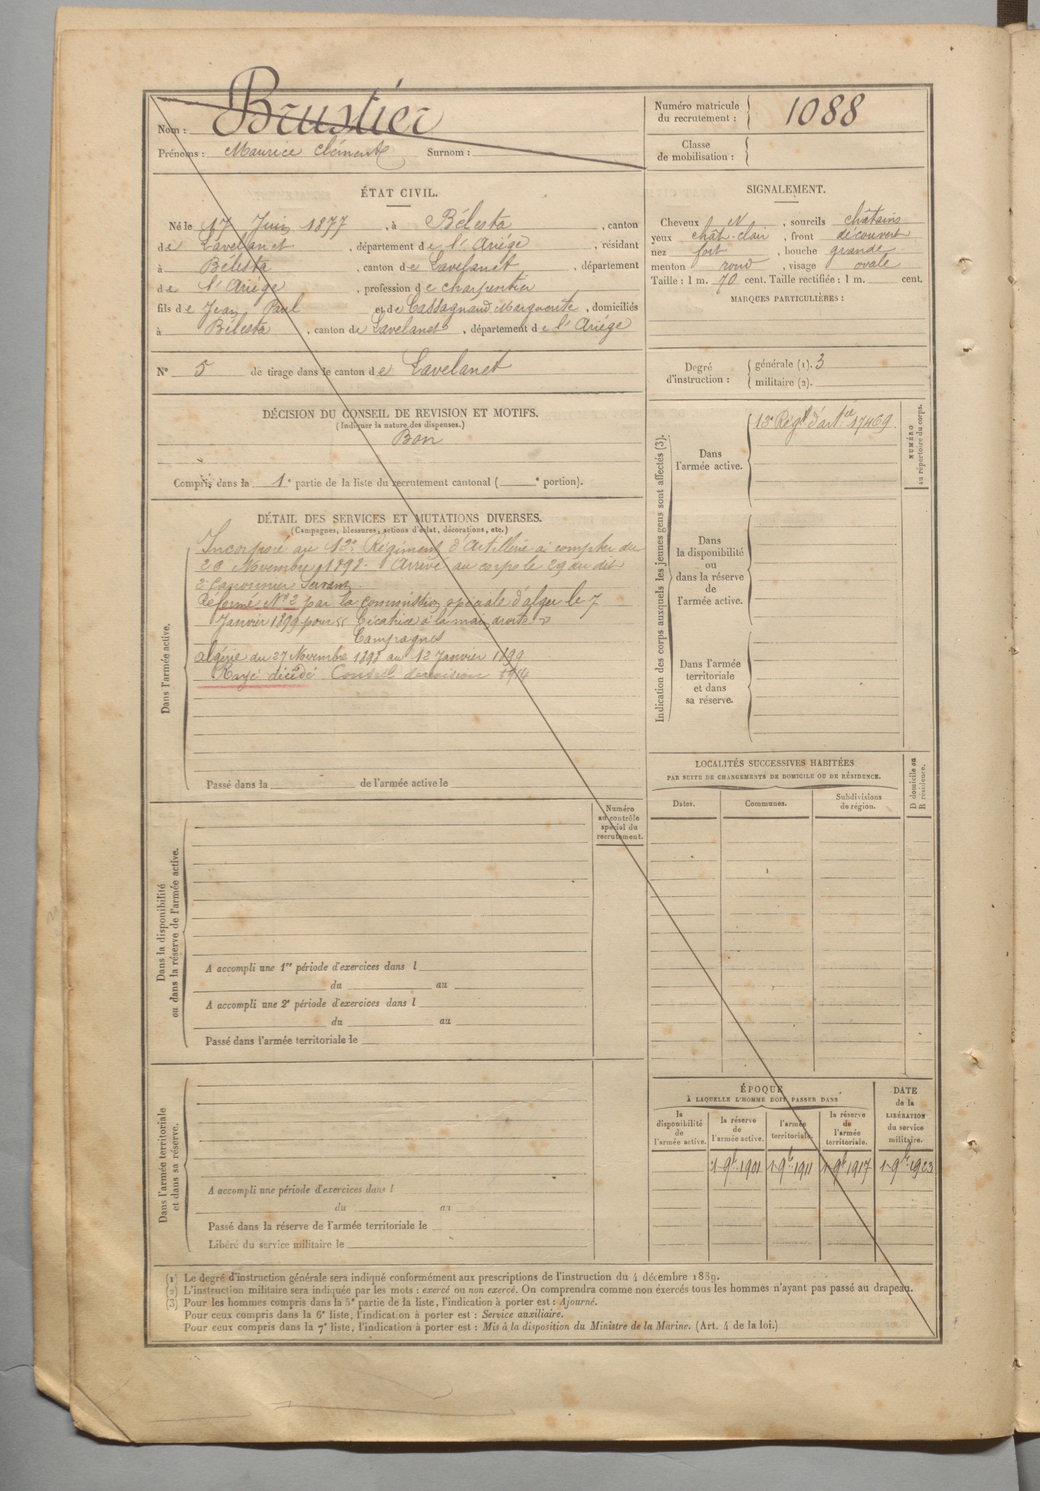 Nom : Brustier
Prénoms : Maurice Clément Surnom :
Numéro matricule du recrutement : 1088
Classe de mobilisation :
ÉTAT CIVIL.
Né le 17 Juin 1877, à Bélesta, canton
de Lavelanet, département de l'Ariége, résidant
à Bélesta, canton de Lavelanet, département
de l'Ariége, profession de charpentier
fils de Jean Paul et de Cassagnaud Marguerite, domiciliés
à Bélesta, canton de Lavelanet, département de l'Ariége
N° 5 de tirage dans le canton de Lavelanet
SIGNALEMENT.
Cheveux N, sourcils châtains
yeux chât-clair, front découvert
nez fort, bouche grande
menton rond, visage ovale
Taille : 1 m. 70 cent. Taille rectifiée : 1 m. cent.
MARQUES PARTICULIÈRES :
Degré d'instruction : générale (1). 3
militaire (2).
DÉCISION DU CONSEIL DE REVISION ET MOTIFS.
(Indiquer la nature des dispenses.)
Bon
Compris dans la 1e partie de la liste du recrutement cantonal ( e portion).
DÉTAIL DES SERVICES ET MUTATIONS DIVERSES.
(Campagnes, blessures, actions d'éclat, décorations, etc.)
Dans l'armée active.
Incorporé au 13e Régiment d'Artillerie à compter du
29 Novembre 1898. Arrivé au corps le 29 du dit
2e Canonnier Servant
Réformé N° 2 par la commission spéciale d'alger le 7
Janvier 1899 pour « Cicatrice à la main droite »
Campagnes
Algérie du 27 Novembre 1898 au 12 Janvier 1899
Rayé décédé Conseil de révision 1914
Passé dans la de l'armée active le
Indication des corps auxquels les jeunes gens sont affectés (3).
NUMÉRO au répertoire du corps.
Dans l'armée active.
13e Régt d'artie 17469
Dans la disponibilité ou dans la réserve de l'armée active.
Dans l'armée territoriale et dans sa réserve.
LOCALITÉS SUCCESSIVES HABITÉES
PAR SUITE DE CHANGEMENTS DE DOMICILE OU DE RÉSIDENCE.
D domicile ou R résidence.
Dates. Communes. Subdivisions de région.
Numéro au contrôle spécial du recrutement.
Dans la disponibilité ou dans la réserve de l'armée active.
A accompli une 1re période d'exercices dans l
du au
A accompli une 2e période d'exercices dans l
du au
Passé dans l'armée territoriale le
Dans l'armée territoriale et dans sa réserve.
A accompli une période d'exercices dans l
du au
Passé dans la réserve de l'armée territoriale le
Libéré du service militaire le
ÉPOQUE
À LAQUELLE L'HOMME DOIT PASSER DANS
la disponibilité de l'armée active.
la réserve de l'armée active.
l'armée territoriale.
la réserve de l'armée territoriale.
DATE de la LIBÉRATION du service militaire.
1-9bre 1901 1-9bre 1911 1-9bre 1917 1-9bre 1923
(1) Le degré d'instruction générale sera indiqué conformément aux prescriptions de l'instruction du 4 décembre 1889.
(2) L'instruction militaire sera indiquée par les mots : exercé ou non exercé. On comprendra comme non exercés tous les hommes n'ayant pas passé au drapeau.
(3) Pour les hommes compris dans la 5e partie de la liste, l'indication à porter est : Ajourné.
Pour ceux compris dans la 6e liste, l'indication à porter est : Service auxiliaire.
Pour ceux compris dans la 7e liste, l'indication à porter est : Mis à la disposition du Ministre de la Marine. (Art. 4 de la loi.)